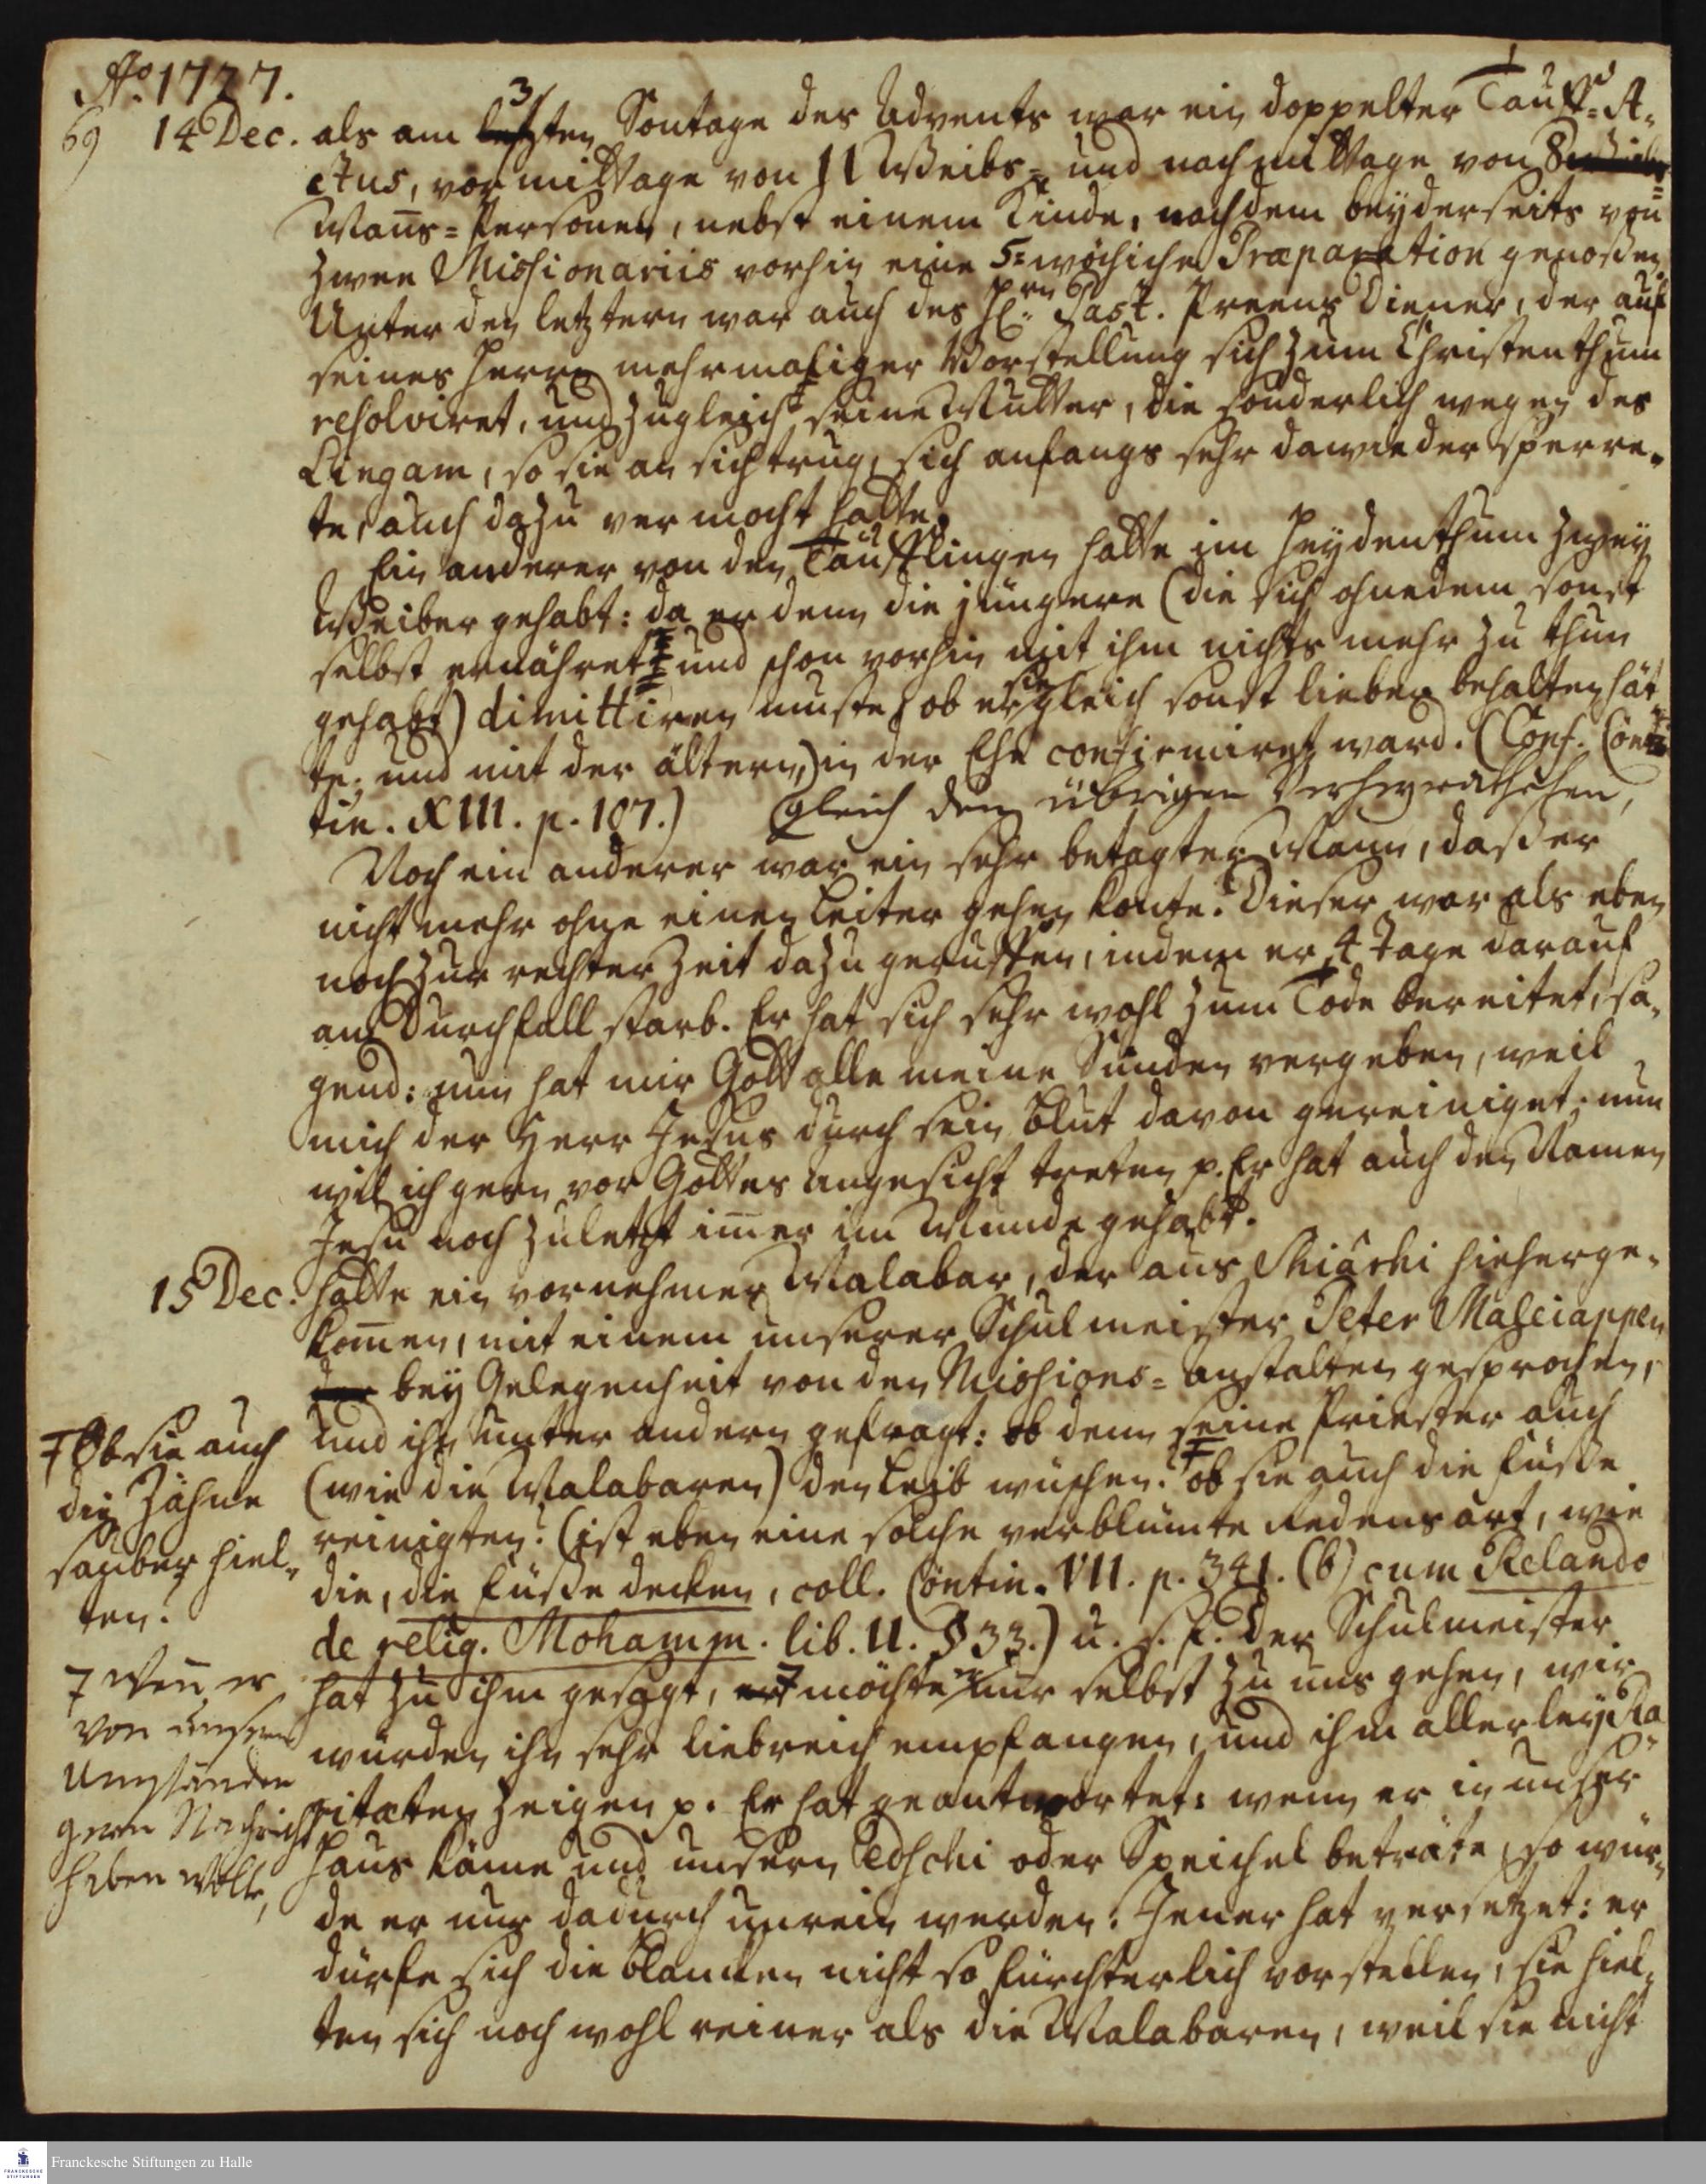 Aº. 1727.
69 14 Dec. als am 3ten Sontage des Advents war ein doppelter Tauff-A-
ctus, vormittage von 11 Weibs- und nachmittage von 8
Mans-Personen, nebst einem Kinde, nachdem beyderseits von
zween Missionariis vorhin eine 5-wöchiche Præparation genoßen.
Unter den letztern war auch des Hrn. Past. Preens Diener, der auf
seines Herrn mehrmaliger Vorstellung sich zum Christenthum
resolviret, und zugleich seine Mutter, die sonderlich wegen des
Lingam, so sie an sich trug, sich anfangs sehr dawieder sperre-
te, auch dazu vermocht hatte.
Ein anderer von den Täufflingen hatte im Heydenthum zwey
Weiber gehabt: da er denn die jüngere (die sich ohnedem sonst
selbst ernähret und schon vorhin mit ihm nichts mehr zu thun
gehabt) dimittiren muste, ob er sie gleich sonst lieber behalten hät-
te; und mit der ältern, in der Ehe confirmiret ward. (Conf. Con-
tin. XIII. p. 107.) gleich den übrigen Verheyratheten,
Noch ein anderer war ein sehr betagter Mann, daß er
nicht mehr ohne einen Leiter gehen konte. Dieser war als eben
noch zur rechter Zeit dazu geruffen, indem er 4 Tage darauf
am Durchfall starb. Er hat sich sehr wohl zum Tode bereitet, sa-
gend: nun hat mir Gott alle meine Sünden vergeben, weil
mich der Herr Jesus durch sein Blut davon gereiniget; nun
wil ich gern vor Gottes Angesicht treten p. Er hat auch den Namen
Jesu noch zuletzt imer im Munde gehabt.
15 Dec. hatte ein vornehmer Malabar, der aus Shiárhi hieherge-
komen, mit einem unserer Schulmeister Peter Maleiappen
bey Gelegenheit von den Missions-anstalten gesprochen,
und ihn unter andern gefragt: ob denn seine Priester auch
(wie die Malabaren) den Leib wüschen? ob sie auch die Füße
reinigten? (ist eben eine solche verblümte Redensart, wie
die, die Füße decken, coll. Contin. VII. p. 341. (b) cum Relando
de relig. Mohamm. lib. II. § 33.) u. s. f. Der Schulmeister
hat zu ihm gesagt, möchte er nur selbst zu uns gehen, wir
würden ihn sehr liebreich empfangen, und ihm allerley Ra-
ritæten zeigen p. Er hat geantwortet: wenn er in unser
Haus käme und unsern Edschi oder Speichel beträte, so wür-
de er nur dadurch unrein werden. Jener hat versetzet: er
dürfe sich die Blancken nicht so fürchterlich vorstellen, sie hiel-
ten sich noch wohl reiner als die Malabaren, weil sie nicht
Ŧ Ob sie auch
die Zähne
sauber hiel-
ten?
Ŧ wen er
von unsern
Umständen
gern Nachricht
haben wolte,
Franckesche Stiftungen zu Halle